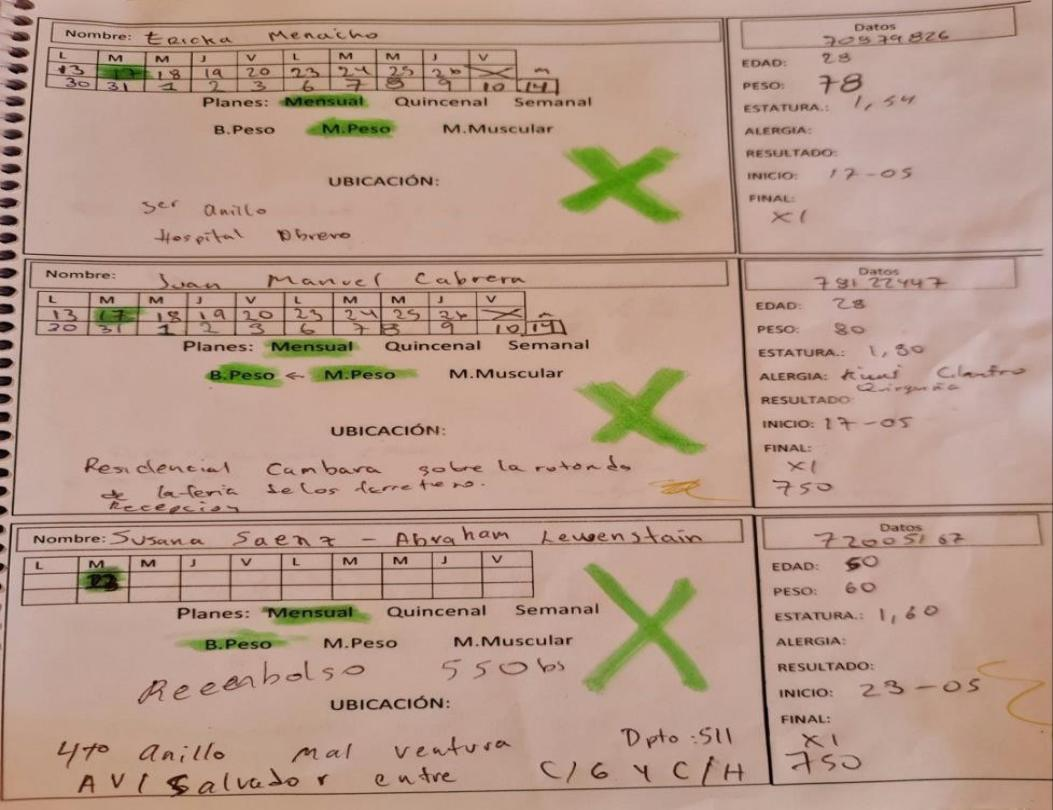 Nombre: Ericka Menaicho
L M M J V L M M J V
13 17 18 19 20 23 24 25 26
30 31 1 2 3 6 7 8 9 10 14
Planes: Mensual Quincenal Semanal
B.Peso M.Peso M.Muscular
UBICACIÓN:
3er anillo
Hospital Obrero
Datos
70879826
EDAD: 28
PESO: 78
ESTATURA.: 1,54
ALERGIA:
RESULTADO:
INICIO: 17-05
FINAL:
X1
Nombre: Juan Manuel Cabrera
L M M J V L M M J V
13 17 18 19 20 23 24 25 26
30 31 1 2 3 6 7 8 9 10 14
Planes: Mensual Quincenal Semanal
B.Peso ← M.Peso M.Muscular
UBICACIÓN:
Residencial Cambara sobre la rotonda
de la feria
Recepcion
Datos
78122447
EDAD: 28
PESO: 80
ESTATURA.: 1,80
ALERGIA: Kiwi Cilantro
Quirquiña
RESULTADO
INICIO: 17-05
FINAL:
X1
750
Nombre: Susana Saenz - Abraham Lewenstain
L M M J V L M M J V
23
Planes: Mensual Quincenal Semanal
B.Peso M.Peso M.Muscular
Reembolso 550 bs
UBICACIÓN:
4to anillo mal ventura Dpto:511
AV/ Salvador entre C/G Y C/H
Datos
72005167
EDAD: 50
PESO: 60
ESTATURA.: 1,60
ALERGIA:
RESULTADO:
INICIO: 23-05
FINAL:
X1
750